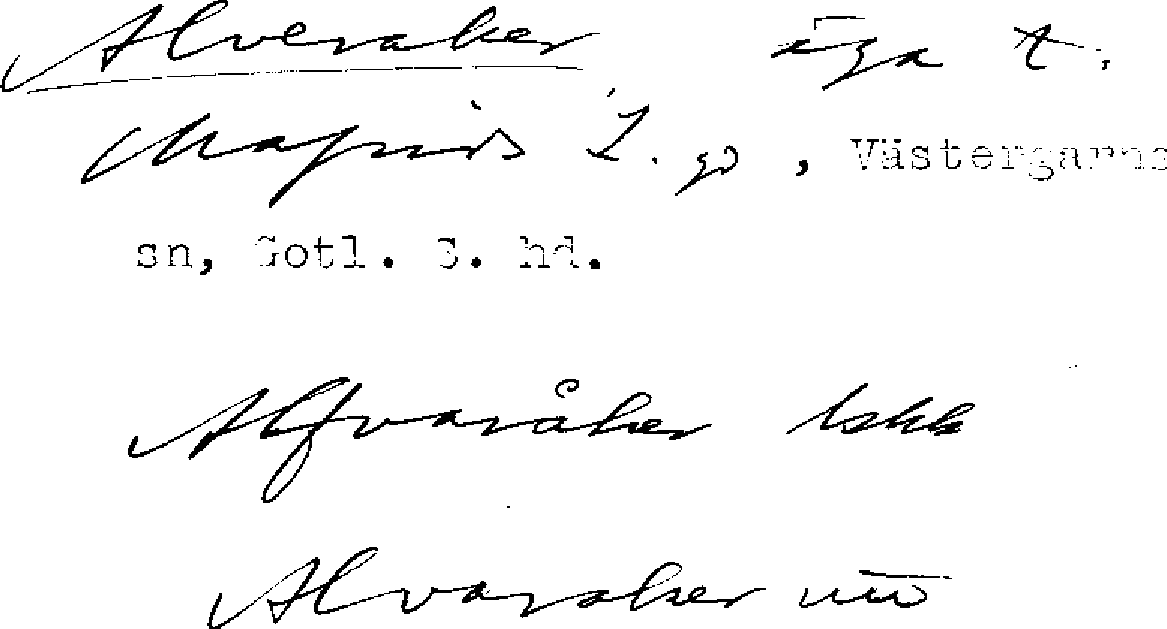 Alveraker äga t.
Mafrids 1. gd, Västergarns
sn, Gotl. S. hd.
Alfvaråker
Alvaraker